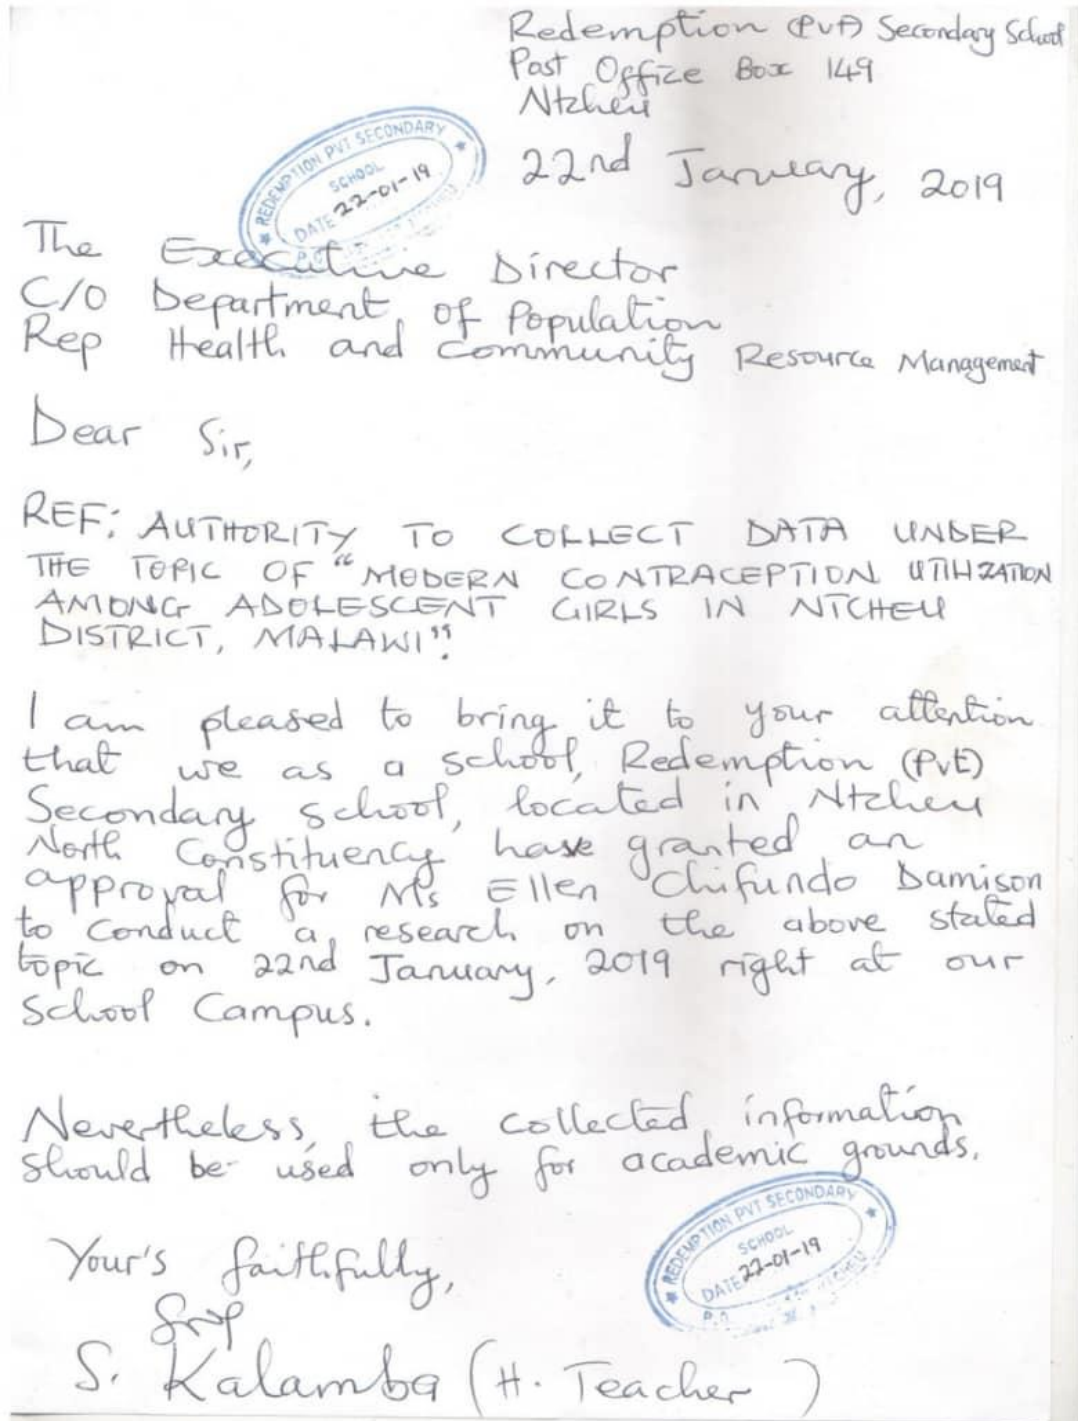 Redemption (Pvt) Secondary School
Post Office Box 149
Ntcheu
22nd January, 2019
REDEMPTION PVT SECONDARY
SCHOOL
DATE 22-01-19
P.O.
The Executive Director
C/O Department of Population
Rep Health and Community Resource Management
Dear Sir,
REF: AUTHORITY TO COLLECT DATA UNDER
THE TOPIC OF "MODERN CONTRACEPTION UTILIZATION
AMONG ADOLESCENT GIRLS IN NTCHEU
DISTRICT, MALAWI".
I am pleased to bring it to your attention
that we as a school, Redemption (Pvt)
Secondary school, located in Ntcheu
North Constituency have granted an
approval for Ms Ellen Chifundo Damison
to conduct a research on the above stated
topic on 22nd January, 2019 right at our
School Campus.
Nevertheless, the collected information
should be used only for academic grounds.
REDEMPTION PVT SECONDARY
SCHOOL
DATE 22-01-19
P.O.
Your's faithfully,
S. Kalamba (H. Teacher)